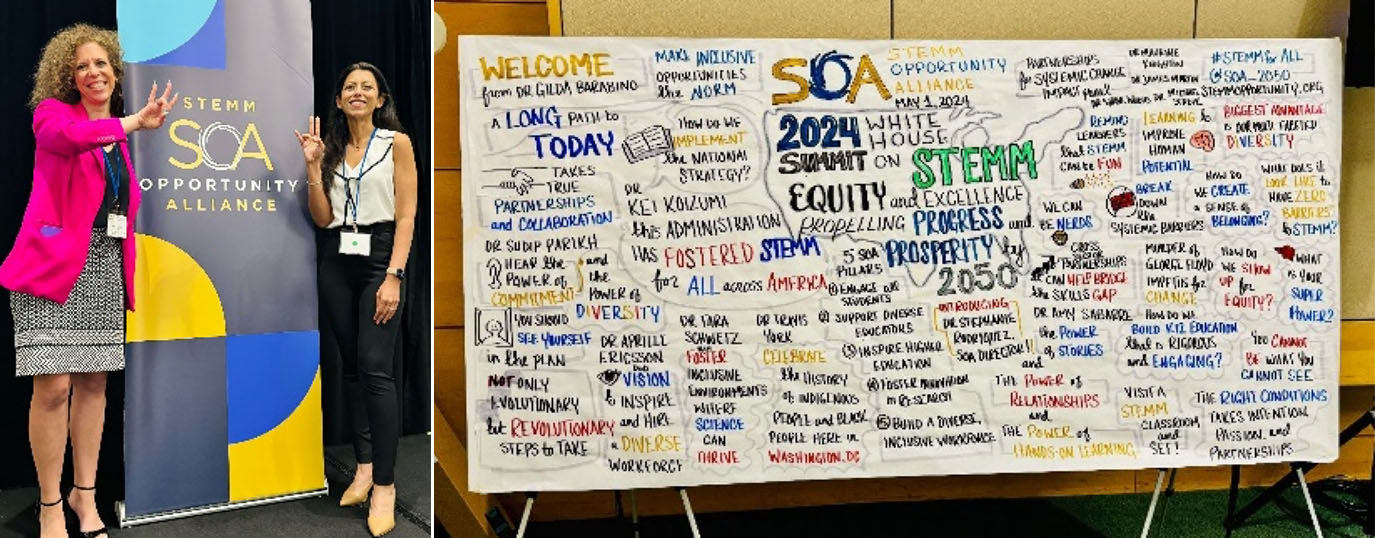 STEMM
SOA
OPPORTUNITY
ALLIANCE
WELCOME
from DR GILDA BARABINO
A LONG PATH to
TODAY
TAKES
TRUE
PARTNERSHIPS
and COLLABORATION
DR SUDIP PARIKH
HEAR the
POWER of
COMMITMENT
and
the
POWER of
DIVERSITY
YOU SHOULD
SEE YOURSELF
in the PLAN
NOT ONLY
EVOLUTIONARY
but REVOLUTIONARY
STEPS to TAKE
MAKE INCLUSIVE
OPPORTUNITIES
the NORM
HOW DO WE
IMPLEMENT
the NATIONAL
STRATEGY?
DR
KEI KOIZUMI
this ADMINISTRATION
HAS FOSTERED STEMM
for ALL across AMERICA
DR APRILLE
ERICSSON
VISION
to INSPIRE
and HIRE
a DIVERSE
WORKFORCE
DR TARA
SCHWETZ
FOSTER
INCLUSIVE
ENVIRONMENTS
WHERE
SCIENCE
CAN
THRIVE
DR TRAVIS
YORK
CELEBRATE
the HISTORY
of INDIGENOUS
PEOPLE and BLACK
PEOPLE HERE in
WASHINGTON, DC
SOA
STEMM
OPPORTUNITY
ALLIANCE
MAY 1, 2024
2024 WHITE
HOUSE
SUMMIT ON STEMM
EQUITY and EXCELLENCE
PROPELLING PROGRESS and
PROSPERITY by
2050
5 SOA
PILLARS
① ENGAGE all
STUDENTS
② SUPPORT DIVERSE
EDUCATORS
③ INSPIRE HIGHER
EDUCATION
④ FOSTER INNOVATION
in RESEARCH
⑤ BUILD A DIVERSE,
INCLUSIVE WORKFORCE
INTRODUCING
DR STEPHANIE
RODRIGUEZ
SOA DIRECTOR!!
and
THE POWER of
RELATIONSHIPS
and
THE POWER of
HANDS-ON LEARNING
PARTNERSHIPS
for SYSTEMIC CHANGE
IMPACT PANEL
#STEMM for ALL
@SOA_2050
STEMMOPPORTUNITY.ORG
REMIND
LEARNERS
that STEMM
CAN be FUN
WE CAN
BE NERDS
CROSS
SECTOR
PARTNERSHIPS
CAN HELP BRIDGE
the SKILLS GAP
DR AMY SABARRE
the POWER
of STORIES
LEARNING to
IMPROVE
HUMAN
POTENTIAL
BREAK
DOWN
SYSTEMIC BARRIERS
MURDER of
GEORGE FLOYD
IMPETUS for
CHANGE
HOW DO WE
BUILD K12 EDUCATION
that is RIGOROUS
and ENGAGING?
VISIT A
STEMM
CLASSROOM
and
SEE!
BIGGEST ADVANTAGE
is OUR MULTI FACETED
DIVERSITY
HOW DO
WE CREATE
a SENSE of
BELONGING?
WHAT DOES it
LOOK LIKE to
HAVE ZERO
BARRIERS
to STEMM?
HOW DO
WE SHOW
UP for
EQUITY?
WHAT
is YOUR
SUPER
POWER?
YOU CANNOT
BE WHAT YOU
CANNOT SEE
THE RIGHT CONDITIONS
TAKES INTENTION
PASSION, and
PARTNERSHIPS